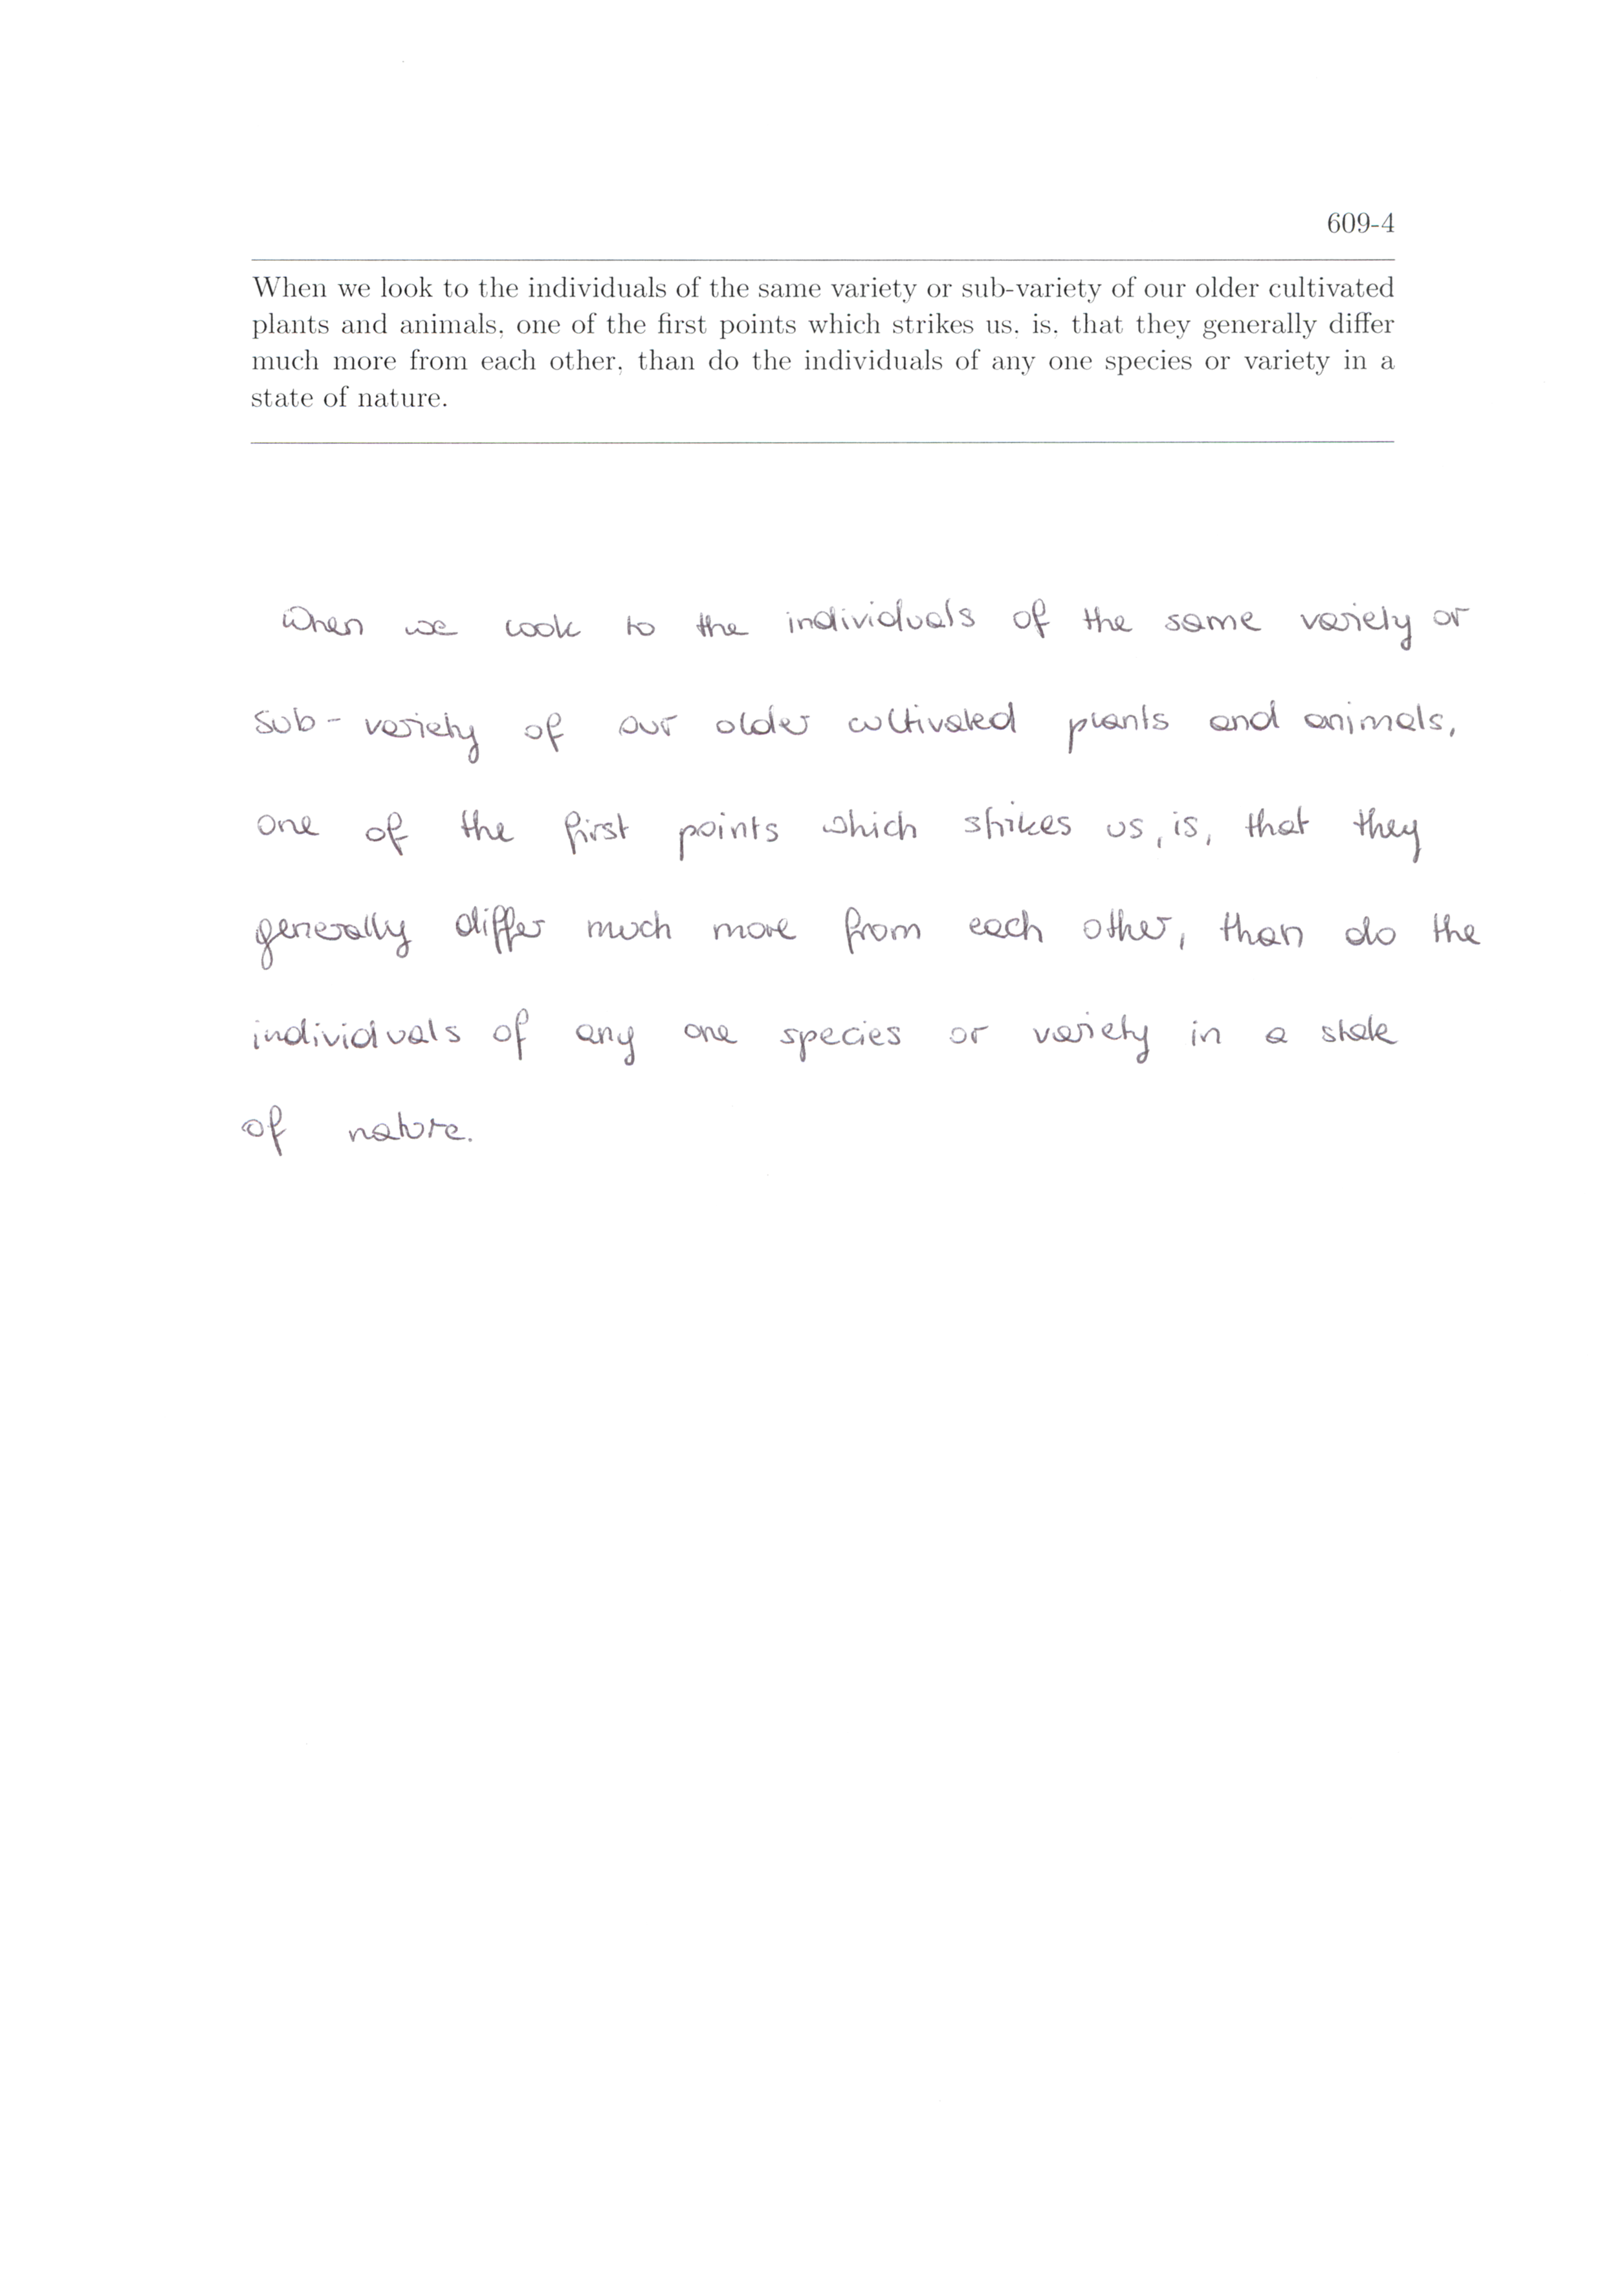 609-4
When we look to the individuals of the same variety or sub-variety of our older cultivated
plants and animals, one of the first points which strikes us, is, that they generally differ
much more from each other, than do the individuals of any one species or variety in a
state of nature.
When we look to the individuals of the same variety or
sub-variety of our older cultivated plants and animals,
one of the first points which strikes us, is, that they
generally differ much more from each other, than do the
individuals of any one species or variety in a state
of nature.